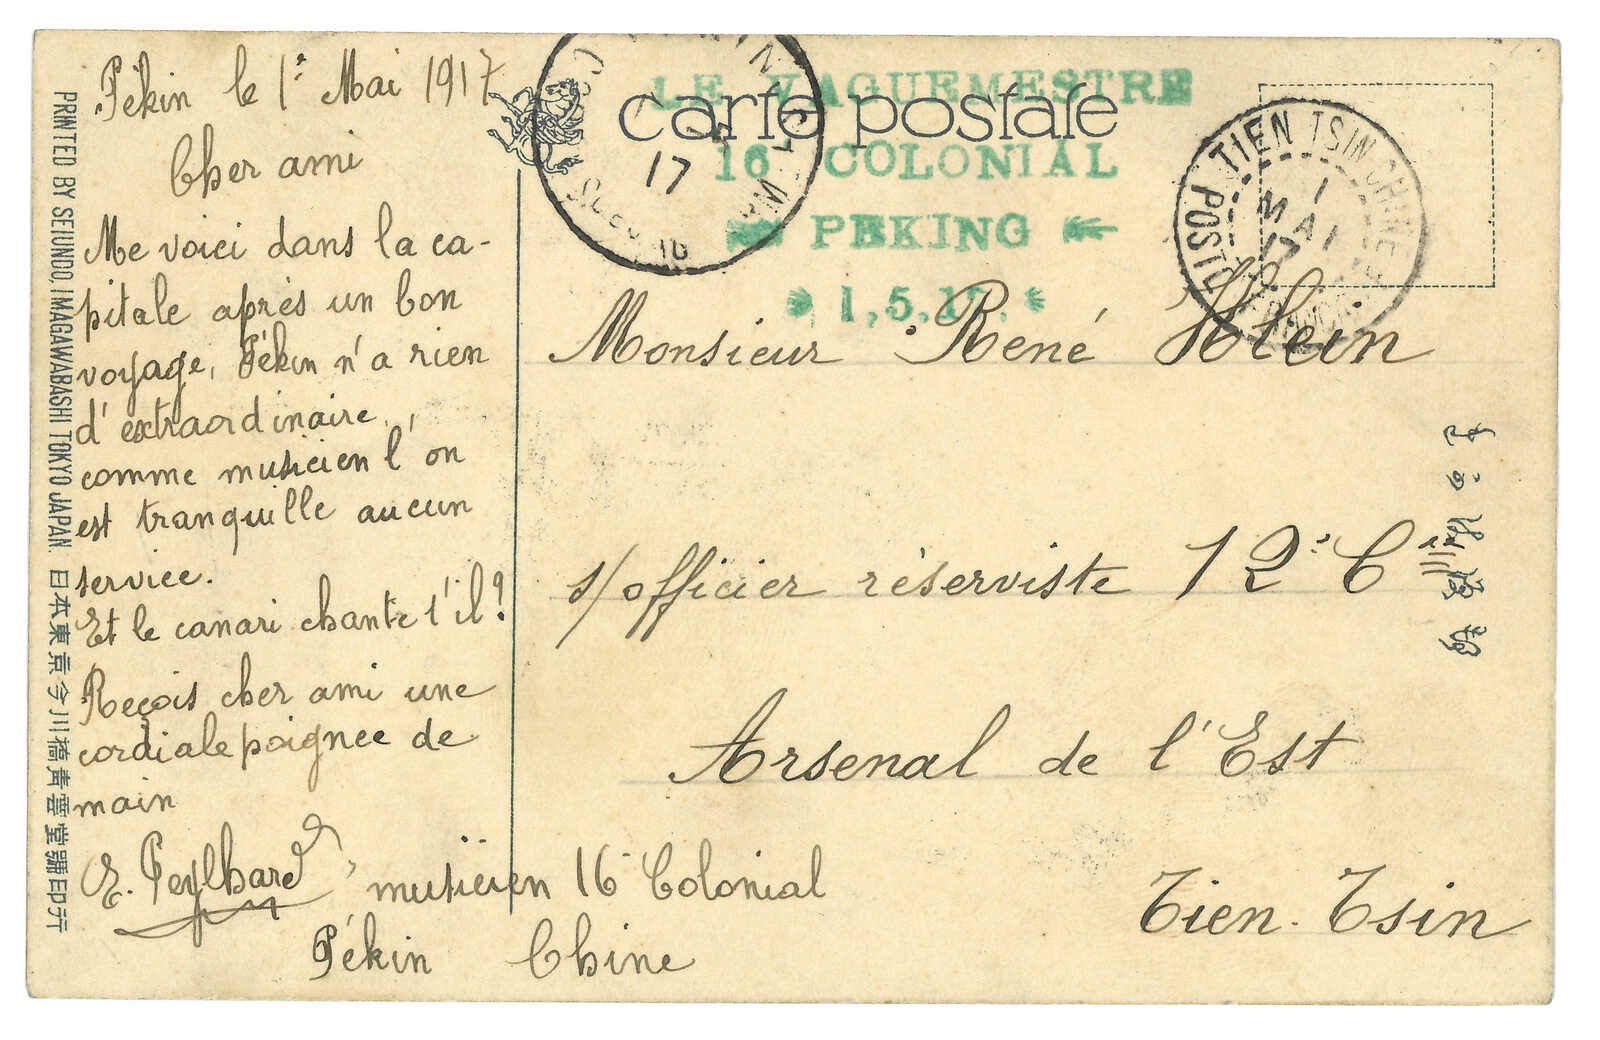 Pékin le 1er Mai 1917
Cher ami
Me voici dans la ca-
pitale après un bon
voyage, Pékin n'a rien
d'extraordinaire,
comme musicien l'on
est tranquille aucun
service.
Et le canari chante t'il?
Reçois cher ami une
cordiale poignee de
main
E. Peylhard musicien 16e Colonial
Pékin Chine
carte postale
LE VAGUEMESTRE
16 COLONIAL
PEKING
1.5.17.
17
TIEN TSIN CHINE
1
MAI
17
Monsieur René Klein
s/officier réserviste 12e Cie
Arsenal de l'Est
Tien-Tsin
PRINTED BY SEIUNDO, IMAGAWABASHI TOKYO JAPAN. 日本東京今川橋青雲堂號印行